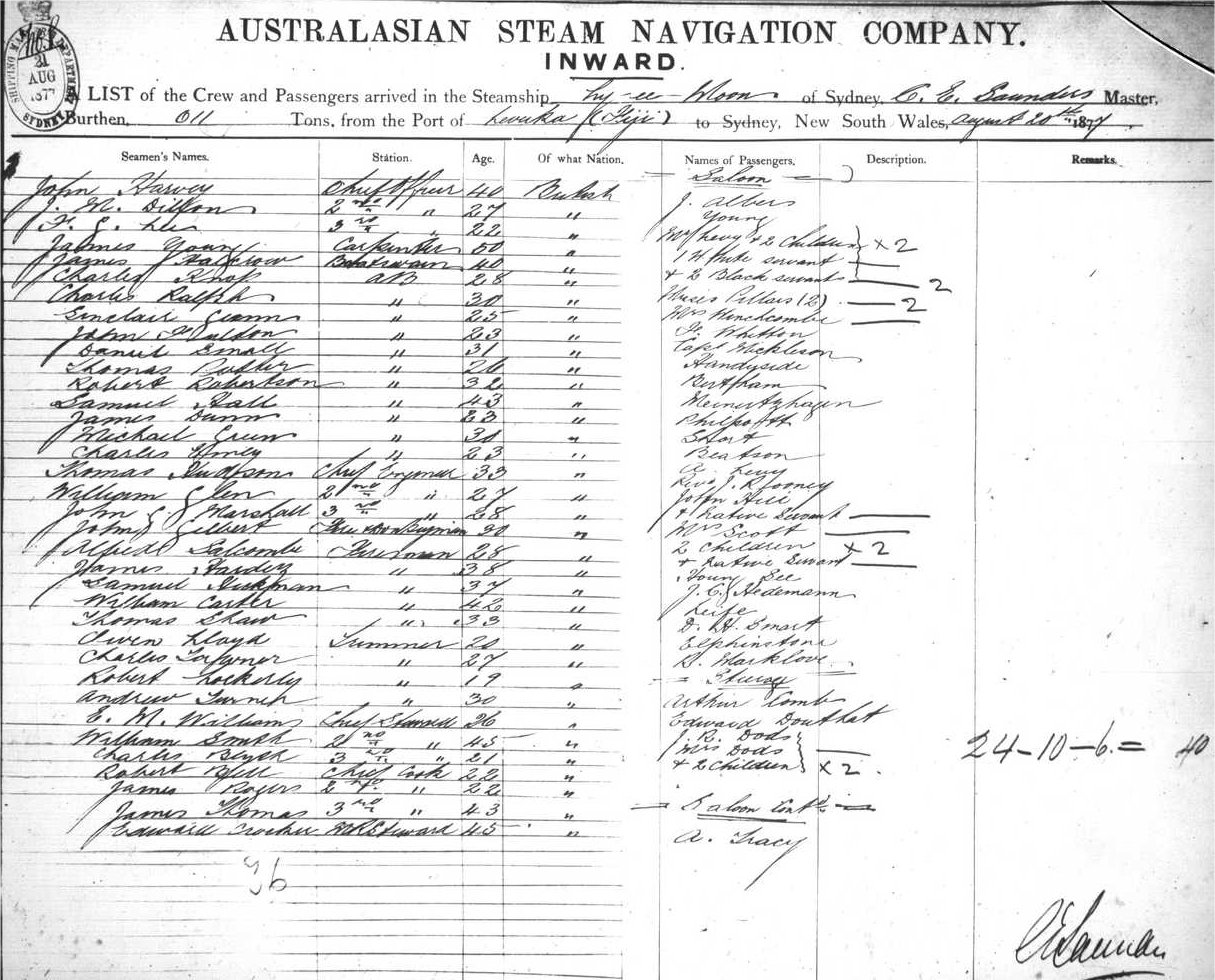 AUG
1877
SYDNEY
AUSTRALASIAN STEAM NAVIGATION COMPANY.
INWARD.
LIST of the Crew and Passengers arrived in the Steamship Ly-ee-Moon of Sydney, C. E. Saunders Master,
Burthen, 011 Tons, from the Port of Levuka (Fiji) to Sydney, New South Wales, August 20th 1877
Seamen's Names. Station. Age. Of what Nation. Names of Passengers. Description. Remarks.
Saloon
John Harvey Chief Officer 40 British
J. M. Dillon 2nd " 27 " J. Albers
F. G. Lee 3rd " 22 " Young
James Young Carpenter 50 " Mrs Levy & 2 Children × 2
James Boatswain 40 " 1 White servant
Charles Knop AB 28 " & 2 Black servants 2
Charles Ralph " 30 " Misses Pillars (2) 2
Sinclair Gunn " 25 " Mrs Hinchcombe
John Fulton " 23 " F. Whitton
Daniel Small " 31 " Capt
Thomas Potter " 26 " Handyside
Robert Robertson " 32 "
Samuel Hall " 43 " Meinertzhagen
James Dunn " 23 " Philpott
Michael Green " 30 " Short
Charles " 23 " Beatson
Thomas Hudson Chief Engineer 33 " A. Levy
William Glen 2nd " 27 " Revd J.
John G. Marshall 3rd " 28 " John Hill
& Native Servant
John J Gilbert 30 " Mrs Scott
Alfred Salcombe Fireman 28 " 2 Children × 2
James Harder " 38 " & Native Servant
Samuel Hickman " 37 " Young See
J. C. Hedemann
William Carter " 42 " Leefe
Thomas Shaw " 33 " D. H. Smart
Owen Lloyd Trimmer 20 " Elphinstone
Charles " 27 " R. Marklove
Robert Lockerly " 19 "
Andrew Turner " 30 " Arthur Comb
E. M. Williams Chief Steward 26 " Edward Douthat
William Smith 2nd " 45 " J. R. Dods
Charles 3rd " 21 " Mrs Dods
24-10-6 = 40
Robert Bell Chief Cook 22 " & 2 Children × 2
James Rogers 2nd " 22 "
James Thomas 3rd " 43 " Saloon Contd
Edward Crocker Steward 45 " A. Tracy
36
C E Saunders